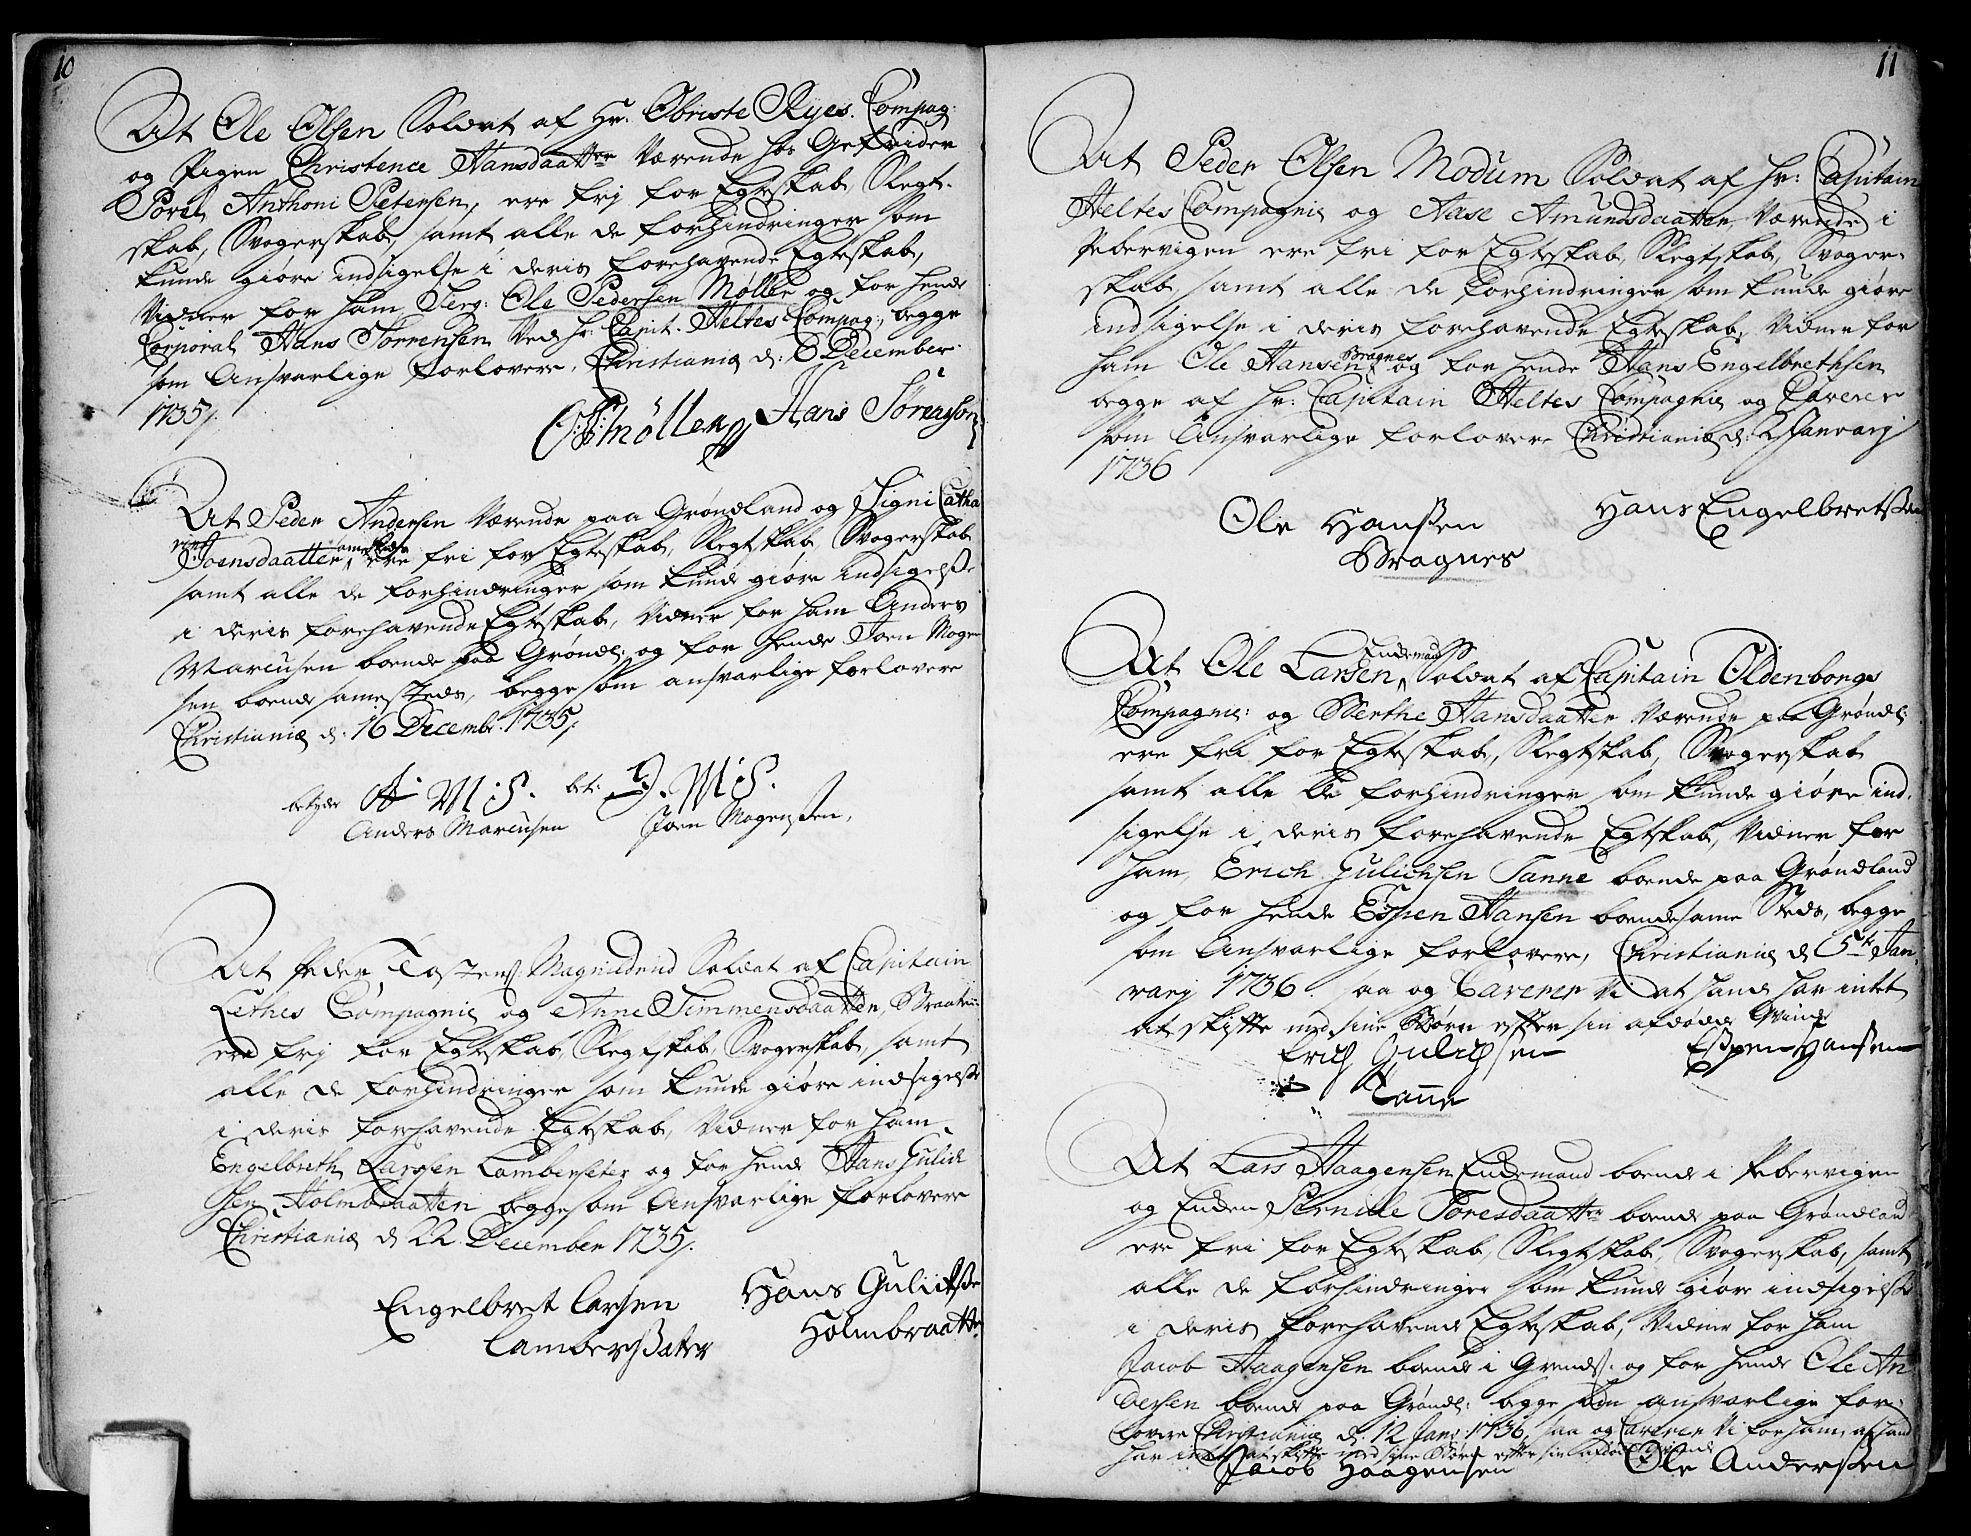 10
At Ole Olsen Soldat af Hr. Obriste Ryes Compag:
og Pigen Christence Hansdaatter Værende hos Gefreider
Poral Anthoni Petersen, ere frj for Egteskab, Slegt-
skab, Svogerskab, samt alle de forhindringer som
kunde giøre indsigelse i deris forehavende Egteskab,
Vidner for ham Serg: Ole Pedersen Møller og for hende
Corporal Hans Sørrensen Ved hr: Capit. Heltes Compag:, begge
som Ansvarlige forlovere, Christiania d: 6 December
1735/.
O:P:Møller Hans Sørensson
At Peder Andersen Værende paa Grøndland og Signi Catha
rina Joensdaatter ere fri for Egteskab, Slegtskab, Svogerskab
samt alle de forhindringer som kunde giøre indsigelse
i deris forehavende Egteskab, Vidner for ham Anders
Marcusen boende paa Grøndl: og for hende Joen Mogen
sen boende samesteds, begge som ansvarlige forlovere
Christiania d: 16 Decembr. 1735/.
betyder A M:S. bet: J. M:S.
Anders Marcusen Joen Mogensen,
At Peder Tostens: Soldat af Capitain
Lethes Compagnie og Anne Simmensdaatter, Braaten
ere frj for Egteskab, Slegtskab, Svogerskab, samt
alle de forhindringer som kunde giøre indsigelse
i deris forehavende Egteskab, Vidner for ham
Engelbreth Larssen Lamberseter og for hende Hans Gulich
sen Holmbraatten begge som Ansvarlige forlovere
Christiania d 22 December 1735/.
Engelbret Larsen Hans Gulichse
Lambersæter Holmbraatten
11
At Peder Olsen Modum Soldat af Hr: Capitain
Heltes Compagnie og Aase Amundsdaatter, Værende i
Pebervigen ere fri for Egteskab, Slegtskab, Svoger-
skab, samt alle de forhindringer som kunde giøre
indsigelse i deris forehavende Egteskab, Vidner for
ham Ole Hansen Bragnes og for hende Hans Engelbrethsen
begge af Hr: Capitain Heltes Compagnie og Caverer
som Ansvarlige forlovere Christiania d: 2 Januarj
1736
Ole Hansen Hans Engelbretsen
Bragnes
At Ole Larsen Enckemand Soldat af Capitain Oldenborgs
Compagnie: og Berthe Hansdaatter Værende paa Grøndl:
ere fri for Egteskab, Slegtskab, Svogerskab
samt alle de forhindringer som kunde giøre ind-
sigelse i deris forehavende Egteskab, Vidner for
ham, Erich Gulichsen Tanne boende paa Grøndland
og for hende Espen Hansen boende same Steds, begge
som Ansvarlige forlovere, Christiania d 5te Jan
varij 1736. saa og Caverer Vi at hand har intet
at skifte med sine Børn efter sin afdøde Qvinde
Erich Gulichsen Espen Hansen
Tanne
At Lars Haagensen Enckemand boende i Pebervigen
og Encken Pernille Toresdaatter boende paa Grøndland
ere fri for Egteskab, Slegtskab, Svogerskab, samt
alle de forhindringer som kunde giøre indsigelse
i deris forehavende Egteskab, Vidner for ham
Jacob Haagensen boende i Grends: og for hende Ole An
dersen boende paa Grøndl: begge som ansvarlige for-
lovere Christiania d: 12 Janr: 1736, saa og Caverer Vi for ham, at hand
har intet at skifte med sine Børn efter sin afdøde Qvinde
Jacob Haagensen Ole Andersen